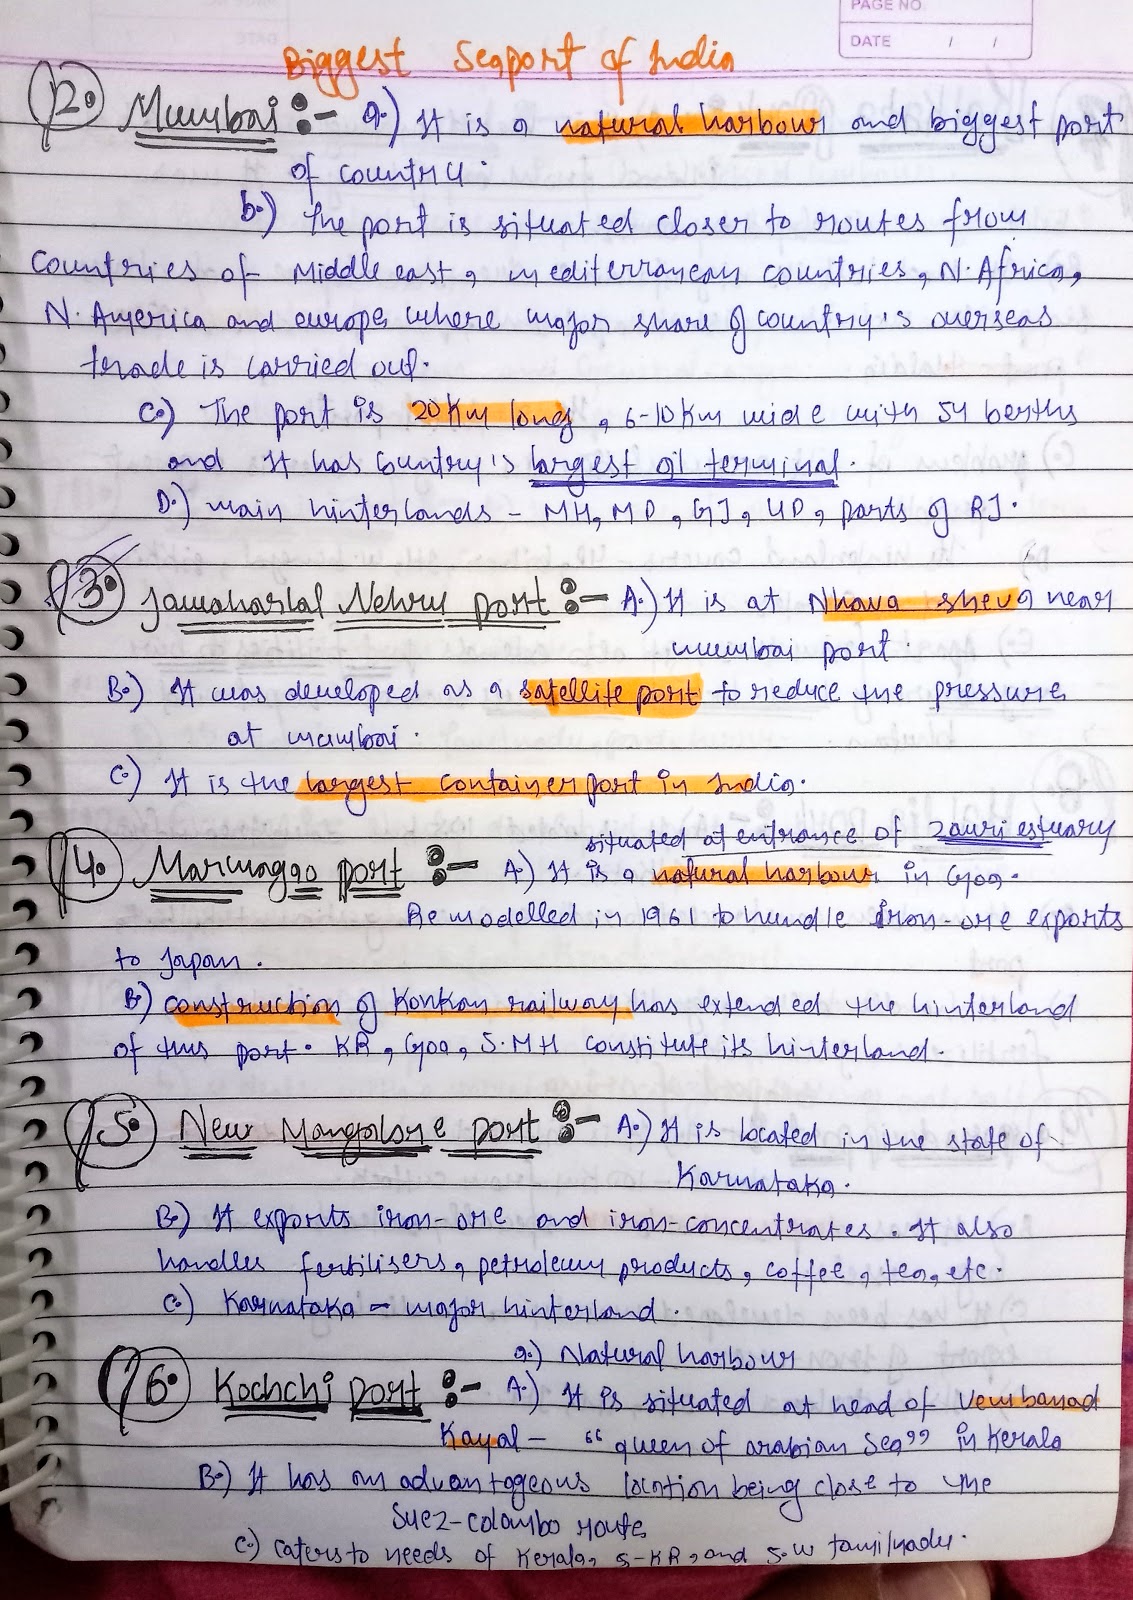 PAGE NO
DATE / /
Biggest Seaport of India
2. Mumbai :- a.) It is a natural harbour and biggest port
of country.
b.) The port is situated closer to routes from
countries of Middle east, mediterranean countries, N. Africa,
N. America and europe where major share of country's overseas
trade is carried out.
C.) The port is 20 Km long, 6-10 Km wide with 54 berths
and It has country's largest oil terminal.
D.) main hinterlands - MH, MP, GJ, UP, parts of RJ.
3. Jawaharlal Nehru port :- A.) It is at Nhava sheva near
mumbai port.
B.) It was developed as a satellite port to reduce the pressure
at mumbai.
C.) It is the largest container port in India.
situated at entrance of Zauri estuary
4. Marmagao port :- A.) It is a natural harbour in Goa.
Remodelled in 1961 to handle Iron-ore exports
to Japan.
B.) construction of Konkan railway has extended the hinterland
of this port. KR, Goa, S.MH constitute its hinterland.
5. New Mangalore port :- A.) It is located in the state of
Karnataka.
B.) It exports iron-ore and iron-concentrates. It also
handles fertilisers, petroleum products, coffee, tea, etc.
C.) Karnataka - major hinterland.
a.) Natural harbour
6. Kochchi port :- A.) It is situated at head of Vembanad
Kayal - "queen of arabian sea" in Kerala
B.) It has an advantageous location being close to the
Suez-colombo route
C.) caters to needs of Kerala, S-KR, and S.W tamilnadu.